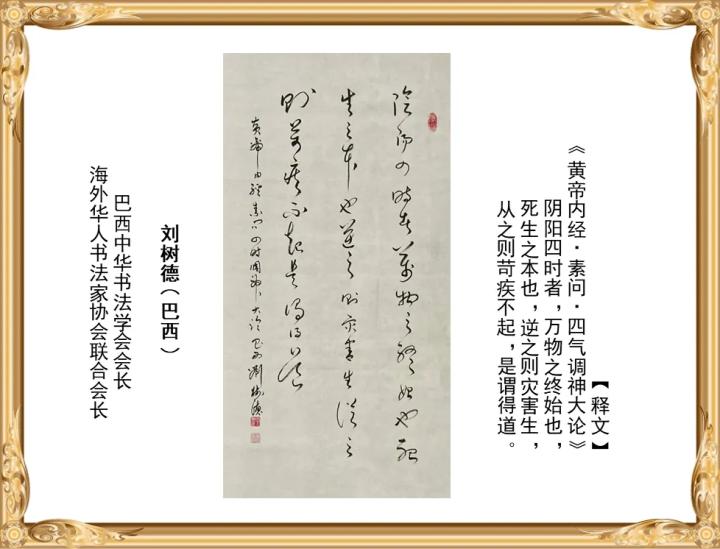 【释文】
《黄帝内经·素问·四气调神大论》
阴阳四时者，万物之终始也，
死生之本也，逆之则灾害生，
从之则苛疾不起，是谓得道。
陰陽四時者萬物之終始也死
生之本也逆之則灾害生從之
則苛疾不起是謂得道
刘树德（巴西）
巴西中华书法学会会长
海外华人书法家协会联合会长